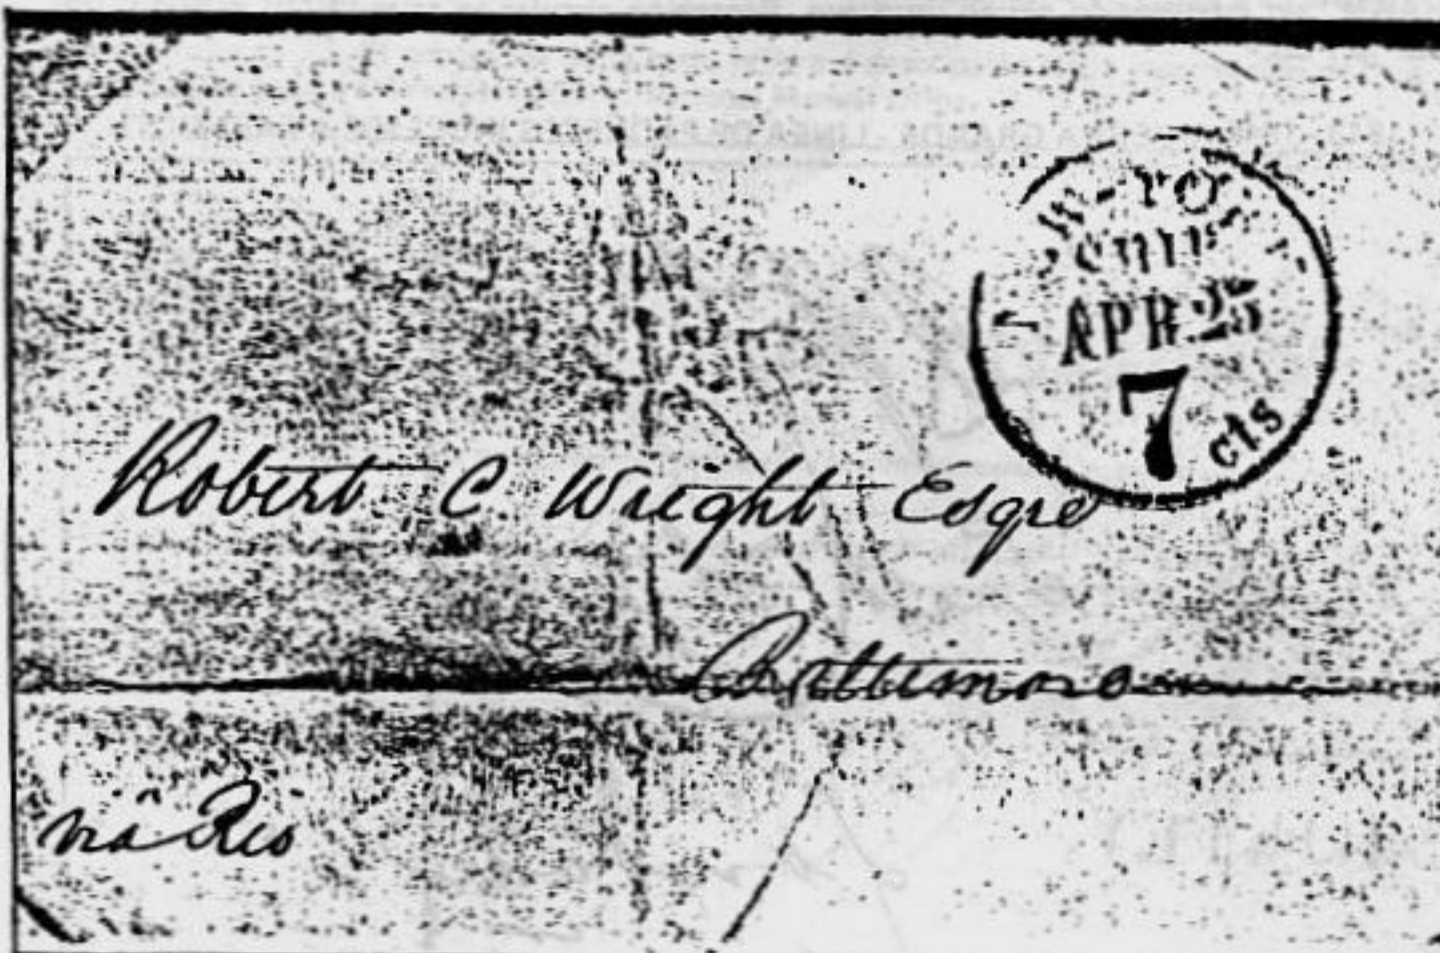 NEW-YORK
SHIP
APR 25
7
cts
Robert C Wright Esqre
Baltimore
via Rio